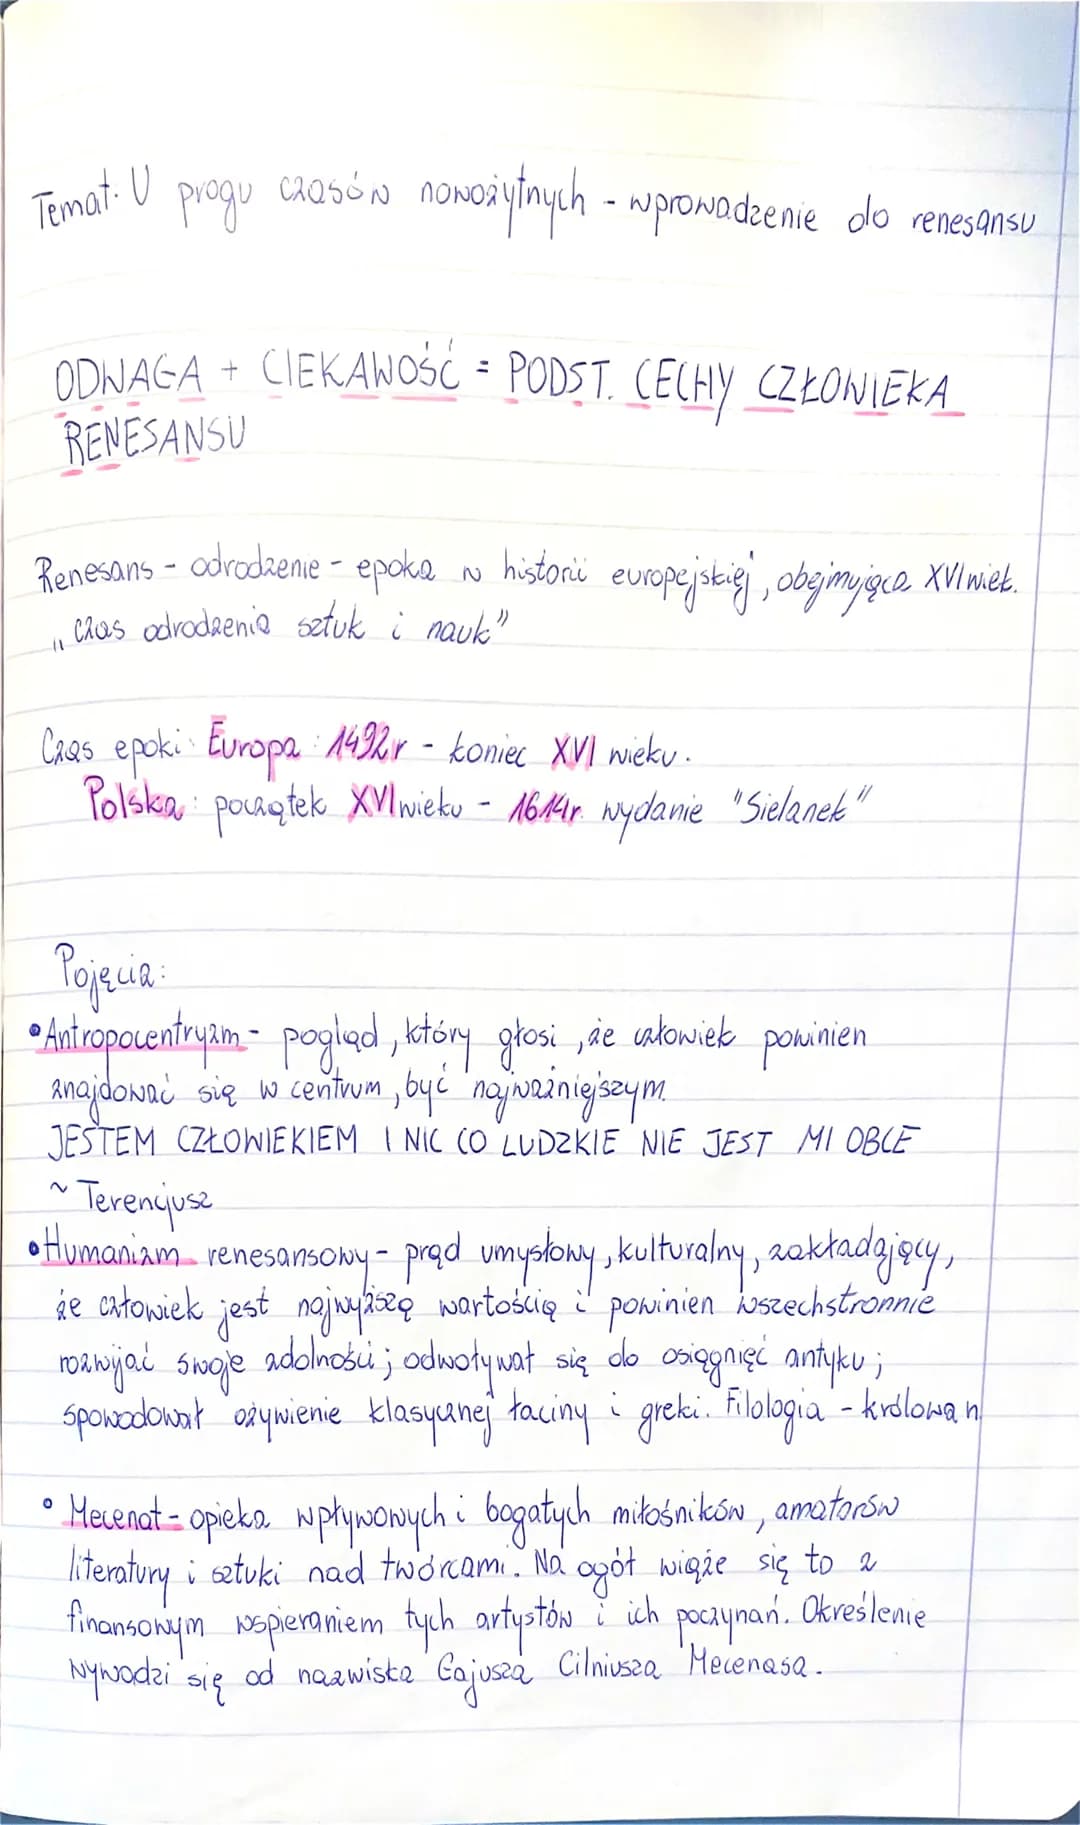 Temat: U progu czasów nowożytnych - wprowadzenie do renesansu
ODWAGA + CIEKAWOŚĆ = PODST. CECHY CZŁOWIEKA
RENESANSU
Renesans - odrodzenie - epoka w historii europejskiej, obejmująca XVI wiek.
„czas odrodzenia sztuk i nauk"
Czas epoki: Europa: 1492r - koniec XVI wieku.
Polska: początek XVI wieku - 1614r. wydanie "Sielanek"
Pojęcia:
• Antropocentryzm - pogląd, który głosi, że człowiek powinien
znajdować się w centrum, być najważniejszym.
JESTEM CZŁOWIEKIEM I NIC CO LUDZKIE NIE JEST MI OBCE
~ Terencjusz
• Humanizm renesansowy - prąd umysłowy, kulturalny, zakładający,
że człowiek jest najwyższą wartością i powinien wszechstronnie
rozwijać swoje zdolności; odwoływał się do osiągnięć antyku;
spowodował ożywienie klasycznej łaciny i greki. Filologia - królowa n
• Mecenat - opieka wpływowych i bogatych miłośników, amatorów
literatury i sztuki nad twórcami. Na ogół wiąże się to z
finansowym wspieraniem tych artystów i ich poczynań. Określenie
wywodzi się od nazwiska Gajusza Cilniusza Mecenasa.